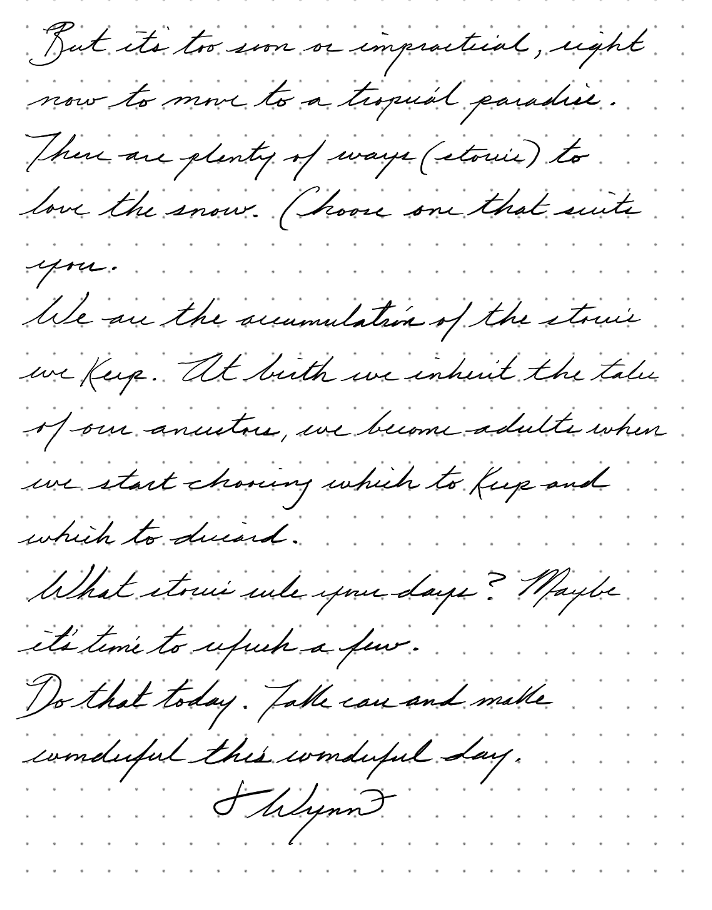 But it's too soon or impractical, right
now to move to a tropical paradise.
There are plenty of ways (stories) to
love the snow. Choose one that suits
you.
We are the accumulation of the stories
we keep. At birth we inherit the tales
of our ancestors, we become adults when
we start choosing which to keep and
which to discard.
What stories rule your days? Maybe
it's time to refresh a few.
Do that today. Take care and make
wonderful this wonderful day.
Wynn